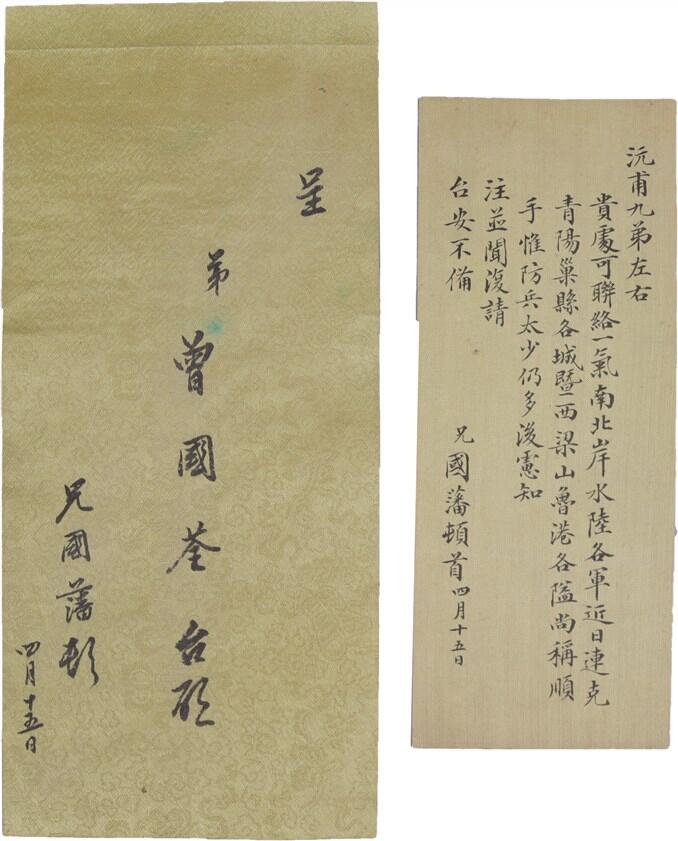 呈
弟
曾國荃台啟
兄國藩頓
四月十五日
沅甫九弟左右
貴處可聯絡一氣南北岸水陸各軍近日連克
青陽巢縣各城暨西梁山魯港各隘尚稱順
手惟防兵太少仍多後憲知
注並聞復請
台安不備
兄國藩頓首四月十五日